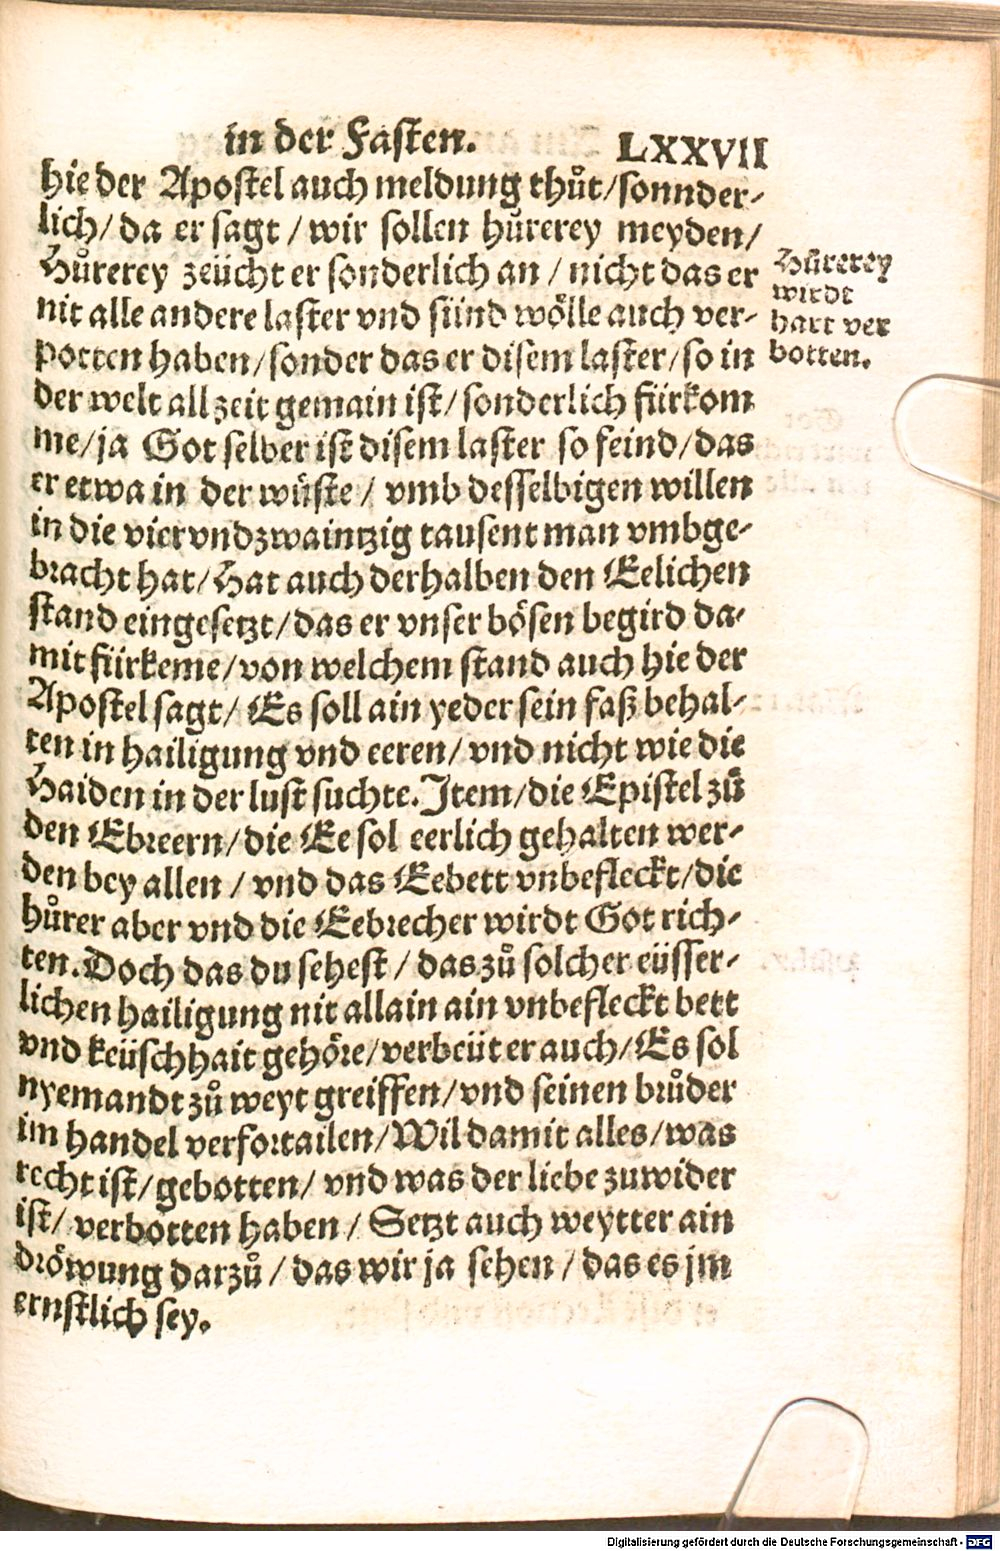 in der Fasten. LXXVII
hie der Apostel auch meldung thůt/sonnder-
lich/ da er sagt / wir sollen hůrerey meyden/
Hůrerey zeücht er sonderlich an / nicht das er
nit alle andere laster vnd sünd wölle auch ver-
potten haben/sonder das er disem laster/so in
der welt allzeit gemain ist/sonderlich fürkom
me/ja Got selber ist disem laster so feind/das
er etwa in der wüste / vmb desselbigen willen
in die vier vndzwaintzig tausent man vmbge-
bracht hat/Hat auch derhalben den Eelichen
stand eingesetzt/das er vnser bösen begird da-
mit fürkeme/von welchem stand auch hie der
Apostel sagt/ Es soll ain yeder sein faß behal-
ten in hailigung vnd eeren/ vnd nicht wie die
Haiden in der lust suchte. Item/die Epistel zů
den Ebreern/die Ee sol eerlich gehalten wer-
den bey allen / vnd das Eebett vnbefleckt/die
hůrer aber vnd die Eebrecher wirdt Got rich-
ten. Doch das du sehest / das zů solcher eüsser-
lichen hailigung nit allain ain vnbefleckt bett
vnd keüschhait gehöre/verbeüt er auch/Es sol
nyemandt zů weyt greiffen/vnd seinen brůder
im handel verfortailen/Wil damit alles/was
recht ist/gebotten/ vnd was der liebe zuwider
ist/ verbotten haben / Setzt auch weytter ain
dröwung darzů / das wir ja sehen / das es jm
ernstlich sey.
Hůrerey
wirdt
hart ver
botten.
Digitalisierung gefördert durch die Deutsche Forschungsgemeinschaft - DFG